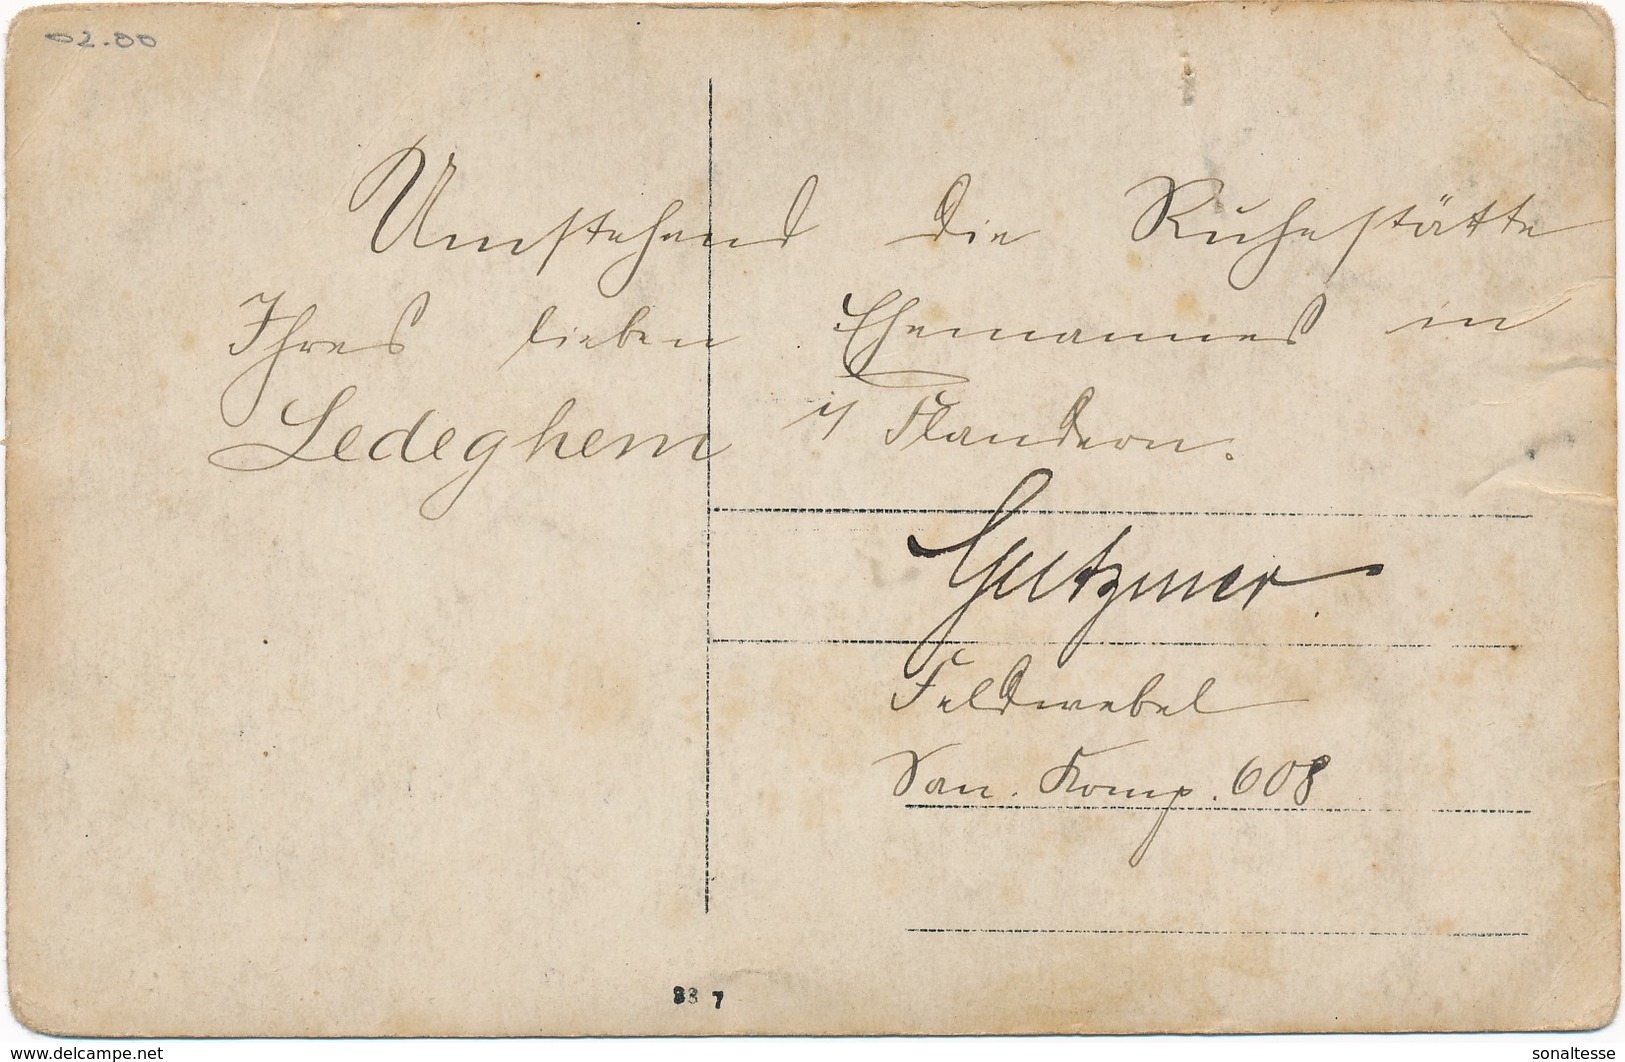 02.00
Umstehend die Ruhestätte
Ihres lieben Ehemannes in
Ledeghem i/ Flandern.
Gutzmer
Feldwebel
San. Komp. 608
93 7
www.delcampe.net
sonaltesse